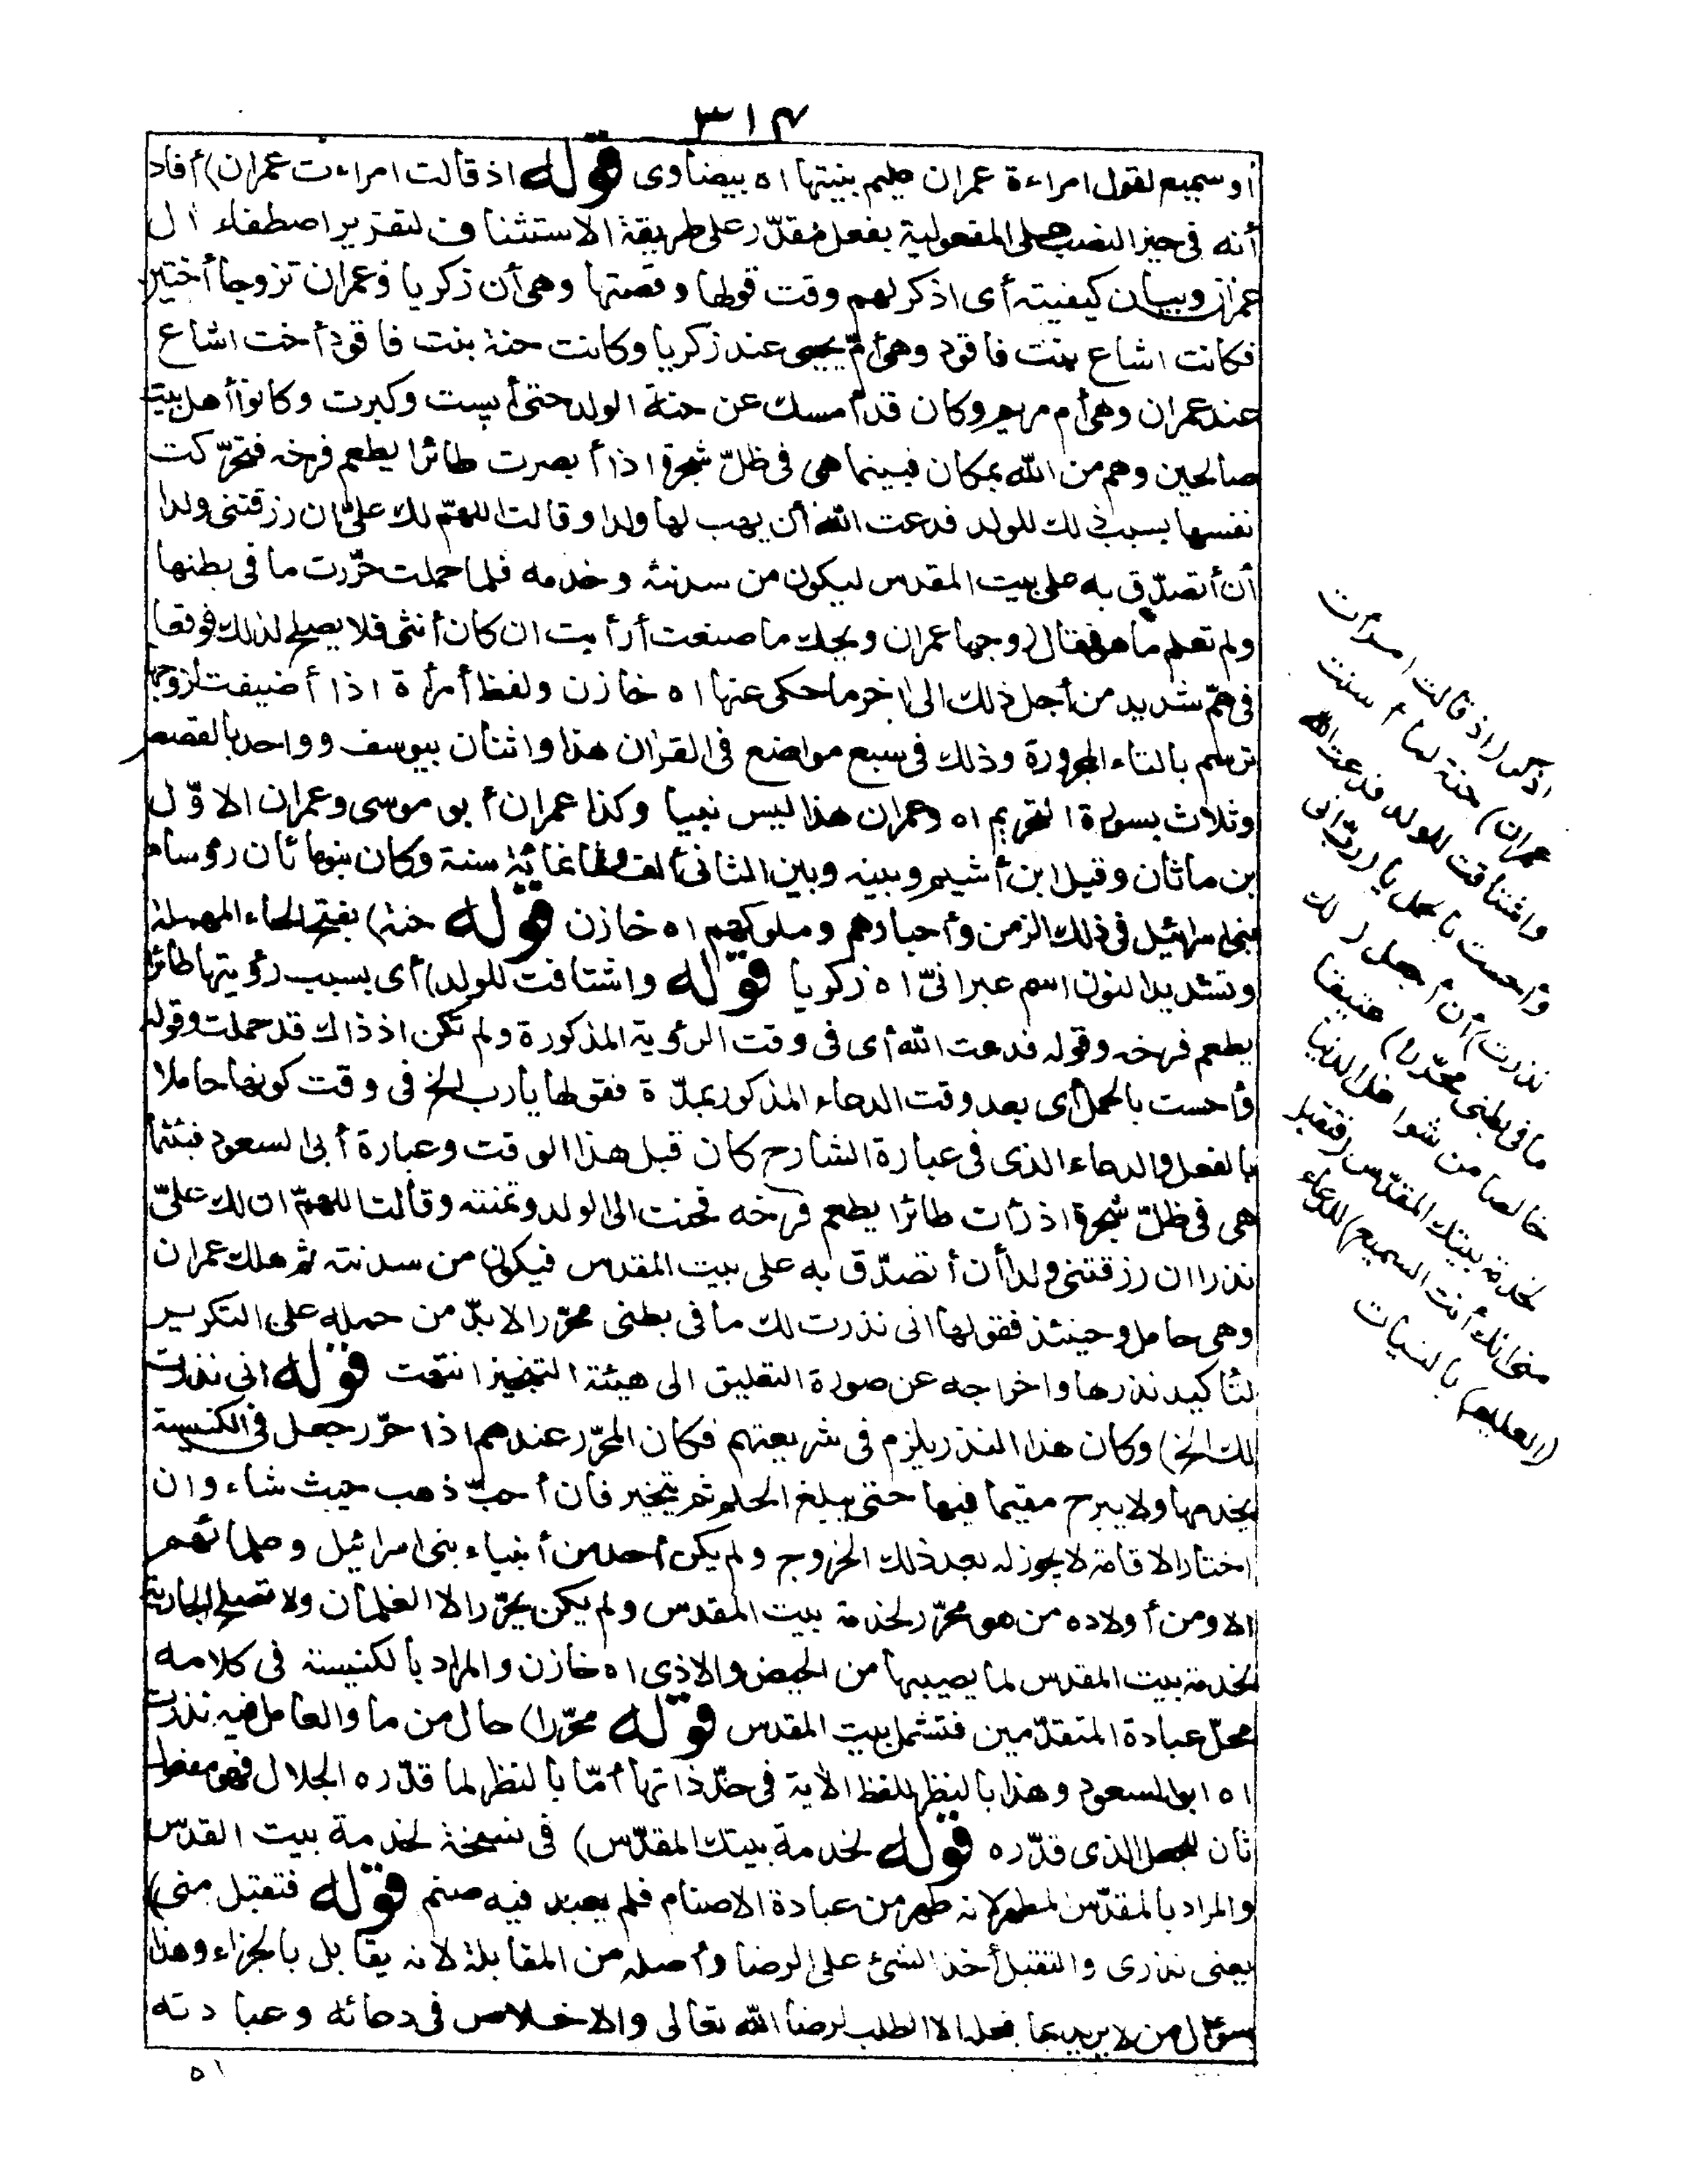 ٣١٧
أو سميع لقول امراءة عمران عليم بنيتها اه بيضاوى قوله اذ قالت امراءت عمران) أفاد
أنه فى حيز النصب على المفعولية بفعل مقدّر على طريقة الاستئناف لتقرير اصطفاء ال
عمران وبيان كيفيته أى اذكر لهم وقت قولها وقصتها وهى أن زكريا وعمران تزوجا أختين
فكانت اشاع بنت فاقود وهى أمّ يحيى عند زكريا وكانت حنة بنت فاقود أخت اشاع
عند عمران وهى أم مريم وكان قد أمسك عن حنة الولد حتى أيست وكبرت وكانوا أهل بيت
صالحين وهم من الله بمكان فبينما هى فى ظلّ شجرة اذا أبصرت طائرا يطعم فرخه فتحرّكت
نفسها بسبب ذلك للولد فدعت الله أن يهب لها ولدا وقالت اللهمّ لك علىّ ان رزقتنى ولدا
أن أتصدّق به على بيت المقدس ليكون من سدنته وخدمه فلما حملت حرّرت ما فى بطنها
ولم تعلم ما هو فقال زوجها عمران ويحك ما صنعت أرأيت ان كان أنثى فلا يصلح لذلك فوقعا
فى همّ شديد من أجل ذلك الى اخر ما حكى عنها اه خازن ولفظ أمرأة اذا أضيفت لزوجها
ترسم بالتاء المجرورة وذلك فى سبع مواضع فى القران هذا واثنان بيوسف وواحد بالقصص
وثلاث بسورة التحريم اه وعمران هذا ليس نبيا وكذا عمران أبو موسى وعمران الاوّل
بن ماثان وقيل ابن أشيم وبينه وبين الثانى ألف وثمانمائة سنة وكان بنو ماثان رؤساء
بنى اسرائيل فى ذلك الزمن وأحبارهم وملوكهم اه خازن قوله حنة) بفتح الحاء المهملة
وتشديد النون اسم عبرانىّ اه زكريا قوله واشتاقت للولد) أى بسبب رؤيتها طائرا
يطعم فرخه وقوله فدعت الله أى فى وقت الرؤية المذكورة ولم تكن اذ ذاك قد حملت وقوله
وأحست بالحمل أى بعد وقت الدعاء المذكور بمدّة فقولها يا رب الخ فى وقت كونها حاملا
بالفعل والدعاء الذى فى عبارة الشارح كان قبل هذا الوقت وعبارة أبى السعود فبينما
هى فى ظلّ شجرة اذ رأت طائرا يطعم فرخه فحنت الى الولد وتمنته وقالت اللهمّ ان لك علىّ
نذرا ان رزقتنى ولدا أن أتصدّق به على بيت المقدس فيكون من سدنته ثم هلك عمران
وهى حامل وحينئذ فقولها انى نذرت لك ما فى بطنى محرّرا لابدّ من حمله على التكرير
لتأكيد نذرها واخراجه عن صورة التعليق الى هيئة التنجيز انتهت قوله انى نذرت
لك الخ) وكان هذا النذر يلزم فى شريعتهم فكان المحرّر عندهم اذا حرّر جعل فى الكنيسة
يخدمها ولا يبرح مقيما فيها حتى يبلغ الحلم ثم يتخير فان أحبّ ذهب حيث شاء وان
اختار الاقامة لا يجوز له بعد ذلك الخروج ولم يكن أحد من أنبياء بنى اسرائيل وعلمائهم
الا ومن أولاده من هو محرّر لخدمة بيت المقدس ولم يكن يحرّر الا الغلمان ولا تصلح الجارية
لخدمة بيت المقدس لما يصيبها من الحيض والاذى اه خازن والمراد بالكنيسة فى كلامه
محلّ عبادة المتقدّمين فتشمل بيت المقدس قوله محرّرا) حال من ما والعامل فيه نذرت
اه ابو السعود وهذا بالنظر للفظ الأية فى حدّ ذاتها أمّا بالنظر لما قدّره الجلال فهو مفعول
ثان للجعل الذى قدّره قوله لخدمة بيتك المقدّس) فى نسخة لخدمة بيت القدس
والمراد بالمقدّس المطهر لانه طهر من عبادة الاصنام فلم يعبد فيه صنم قوله فتقبل منى)
يعنى نذرى والتقبل أخذ الشئ على الرضا وأصله من المقابلة لانه يقابل بالجزاء وهذا
سؤال من لا يريد بما فعله الا الطلب لرضا الله تعالى والاخلاص فى دعائه وعبادته
اه
اذكر (اذ قالت امرأت
عمران) حنة لما أسنت
واشتاقت للولد فدعت الله
وأحست بالحمل يا (رب انى
نذرت) أن أجعل (لك
ما فى بطنى محرّرا) عتيقا
خالصا من شواغل الدنيا
لخدمة بيتك المقدّس (فتقبل
منى انك أنت السميع) للدعاء
(العليم) بالنيات